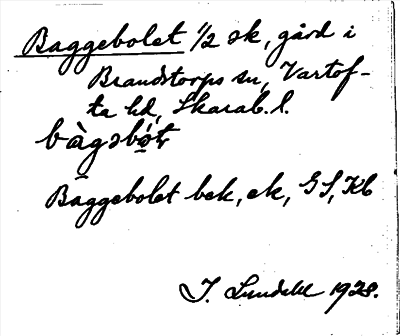 Baggebolet 1/2 sk, gård i
Brandstorps sn, Vartof-
ta hd, Skarab. l.
bàgəbo̤t
Baggebolet bek, ek, GS, Kb
J. Lundell 1928.